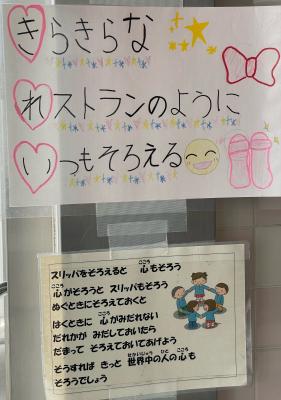 きらきらな
れストランのように
いつもそろえる
スリッパをそろえると 心もそろう
心がそろうと スリッパもそろう
ぬぐときにそろえておくと
はくときに 心がみだれない
だれかが みだしておいたら
だまって そろえておいてあげよう
そうすれば きっと 世界中の人の心も
そろうでしょう